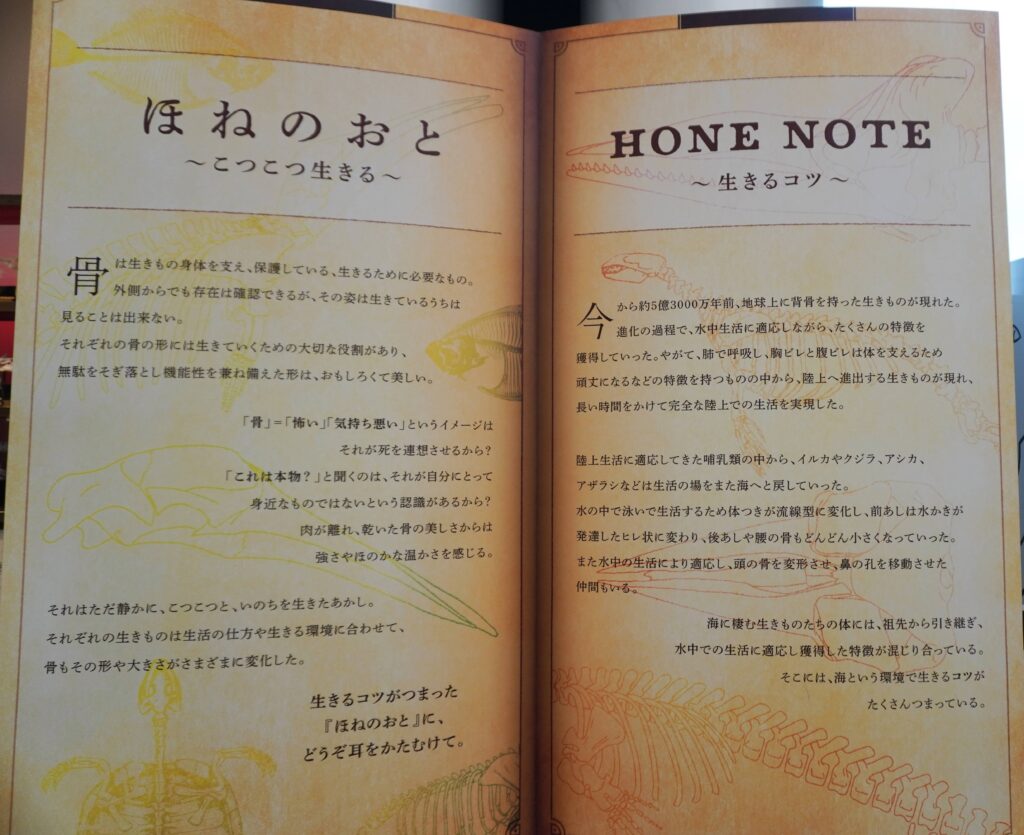 ほねのおと
～こつこつ生きる～
骨は生きもの身体を支え、保護している、生きるために必要なもの。
外側からでも存在は確認できるが、その姿は生きているうちは
見ることは出来ない。
それぞれの骨の形には生きていくための大切な役割があり、
無駄をそぎ落とし機能性を兼ね備えた形は、おもしろくて美しい。
「骨」＝「怖い」「気持ち悪い」というイメージは
それが死を連想させるから?
「これは本物？」と聞くのは、それが自分にとって
身近なものではないという認識があるから?
肉が離れ、乾いた骨の美しさからは
強さやほのかな温かさを感じる。
それはただ静かに、こつこつと、いのちを生きたあかし。
それぞれの生きものは生活の仕方や生きる環境に合わせて、
骨もその形や大きさがさまざまに変化した。
生きるコツがつまった
『ほねのおと』に、
どうぞ耳をかたむけて。
HONE NOTE
～生きるコツ～
今から約5億3000万年前、地球上に背骨を持った生きものが現れた。
進化の過程で、水中生活に適応しながら、たくさんの特徴を
獲得していった。やがて、肺で呼吸し、胸ビレと腹ビレは体を支えるため
頑丈になるなどの特徴を持つものの中から、陸上へ進出する生きものが現れ、
長い時間をかけて完全な陸上での生活を実現した。
陸上生活に適応してきた哺乳類の中から、イルカやクジラ、アシカ、
アザラシなどは生活の場をまた海へと戻していった。
水の中で泳いで生活するため体つきが流線型に変化し、前あしは水かきが
発達したヒレ状に変わり、後あしや腰の骨もどんどん小さくなっていった。
また水中の生活により適応し、頭の骨を変形させ、鼻の孔を移動させた
仲間もいる。
海に棲む生きものたちの体には、祖先から引き継ぎ、
水中での生活に適応し獲得した特徴が混じり合っている。
そこには、海という環境で生きるコツが
たくさんつまっている。